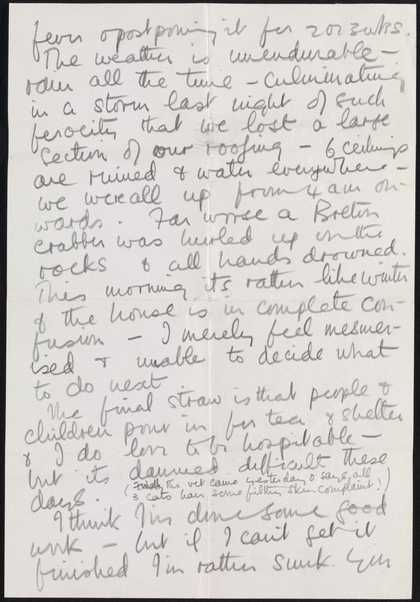 fever & postponing it for 2 or 3 wks.
The weather is unendurable –
rain all the time – culminating
in a storm last night of such
ferocity that we lost a large
section of our roofing – 6 ceilings
are ruined & water everywhere –
we were all up from 4 am on-
wards. Far worse a Breton
crabber was hurled up on the
rocks & all hands drowned.
This morning its rather like winter
& the house is in complete con-
fusion – I merely feel mesmer-
ised & unable to decide what
to do next.
The final straw is that people &
children pour in for tea & shelter
& I do love to be hospitable –
but its damned difficult these
days. (Finally the vet came yesterday & says all
3 cats have some filthy skin complaint!)
I think I'm done some good
work – but if I can't get it
finished I'm rather sunk.